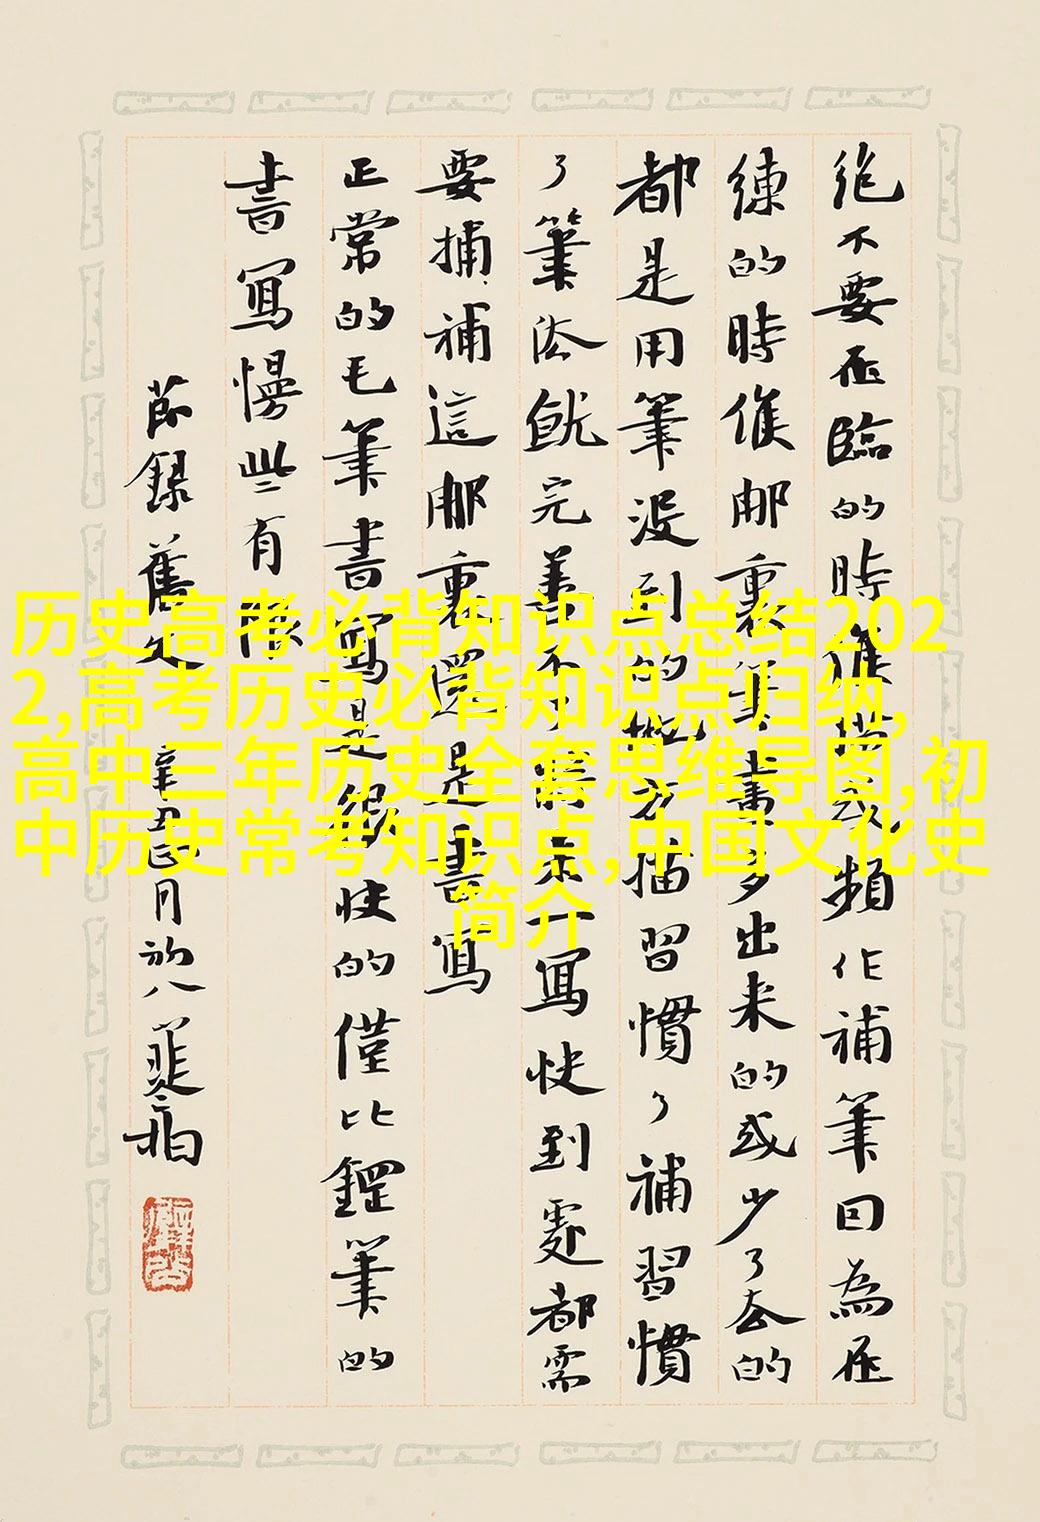 绝不要在臨的時候描或頻作補筆因為在
練的時候那裏筆畫多出來的或少了去的
都是用筆没到的地方描習慣了補習慣
了筆法就完善不了將來一寫快到處都需
要捕補這那裏還是書寫
正常的毛筆書寫是很快的僅比鋼筆的
書寫慢些有限
節録舊文 辛丑正月初八
历史高考必背知识点总结202
2,高考历史必背知识点归纳,
高中三年历史全套思维导图,初
中历史常考知识点,中国文化史
简介